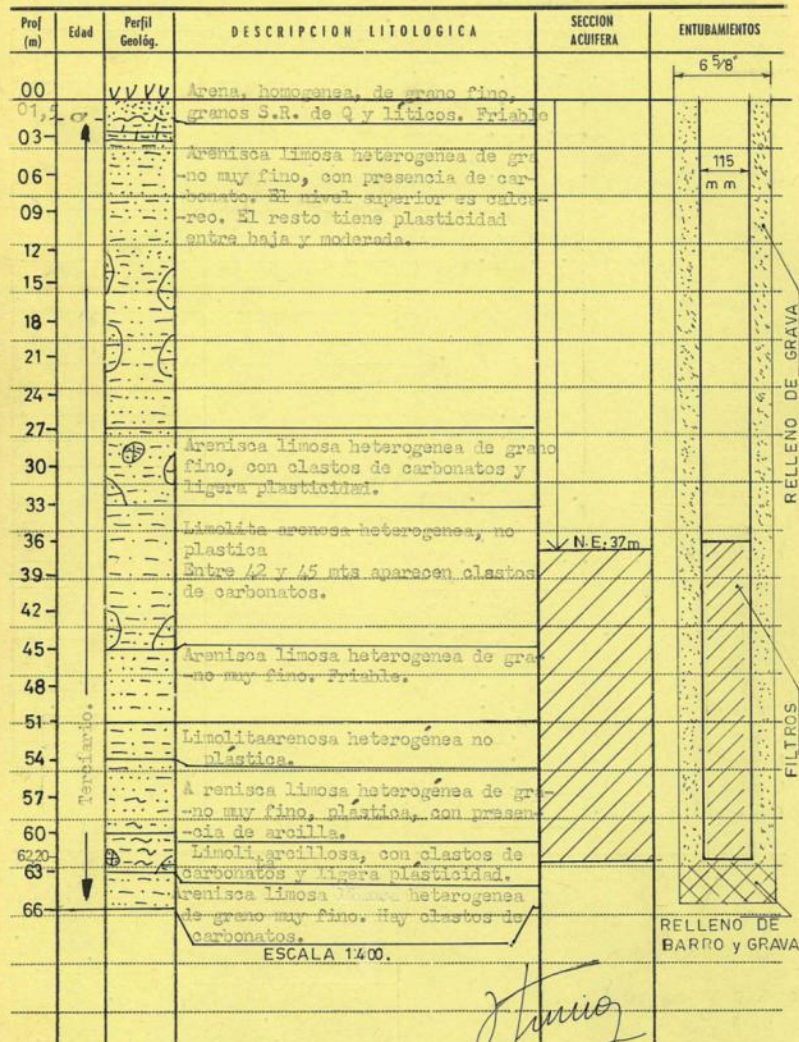 Prof (m)
Edad
Perfil Geológ.
DESCRIPCION LITOLOGICA
SECCION ACUIFERA
ENTUBAMIENTOS
6 5/8"
00
01,5
03
06
09
12
15
18
21
24
27
30
33
36
39
42
45
48
51
54
57
60
62,20
63
66
Terciario.
Arena, homogenea, de grano fino,
granos S.R. de Q y líticos. Friable
Arenisca limosa heterogenea de gra
-no muy fino, con presencia de car-
bonato. El nivel superior es calca-
-reo. El resto tiene plasticidad
entre baja y moderada.
Arenisca limosa heterogenea de grano
fino, con clastos de carbonatos y
ligera plasticidad.
Limolita arenosa heterogenea, no
plastica
Entre 42 y 45 mts aparecen clastos
de carbonatos.
Arenisca limosa heterogenea de gra-
-no muy fino. Friable.
Limolitaarenosa heterogénea no
plástica.
A renisca limosa heterogénea de gra-
-no muy fino, plástica, con presen-
-cia de arcilla.
Limoli.arcillosa, con clastos de
carbonatos y ligera plásticidad.
Arenisca limosa heterogenea
de grano muy fino. Hay clastos de
carbonatos.
ESCALA 1:400.
N.E: 37m
115
m m
RELLENO DE GRAVA
FILTROS
RELLENO DE
BARRO y GRAVA